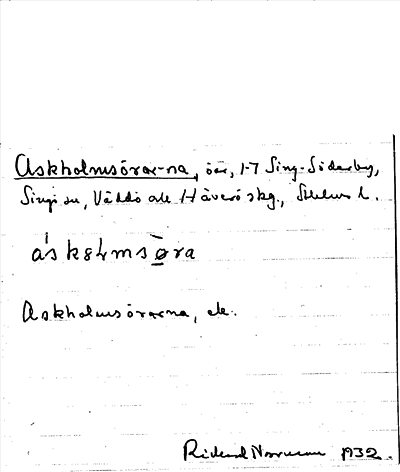 Askholmsörar-na, öar, 1-7 Sing-Söderby,
Singö sn, Väddö och Häverö skg., Sthlms l.
áskɞLmsøra
Askholmsörarna, ek.
Rickard Norrman 1932.